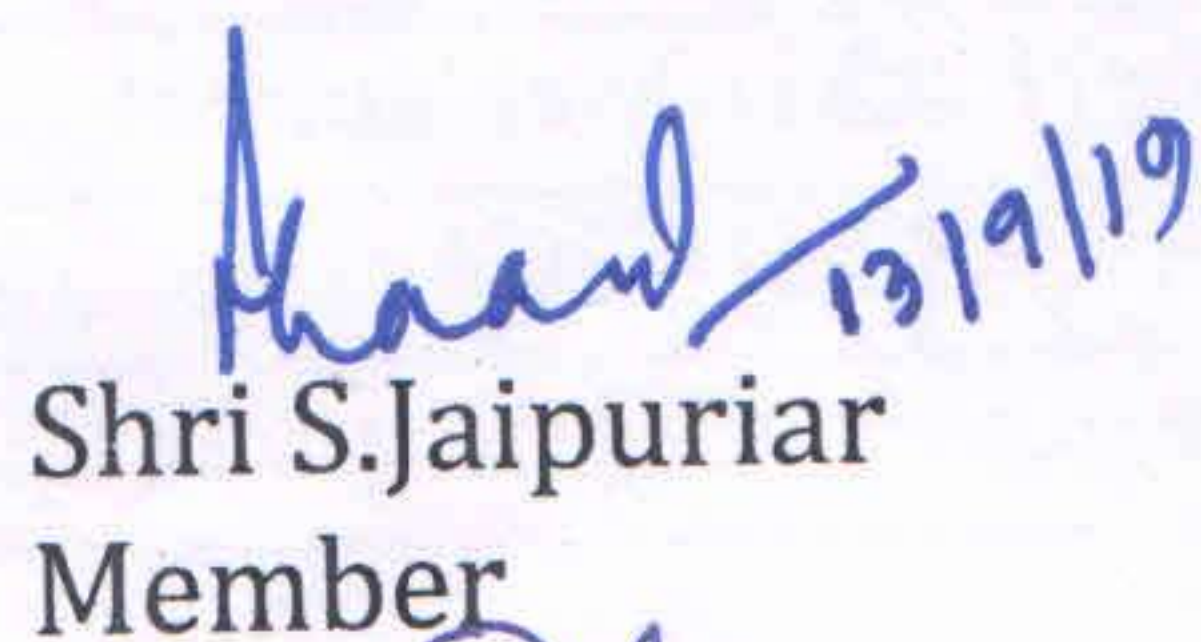 13/9/19
Shri S.Jaipuriar
Member